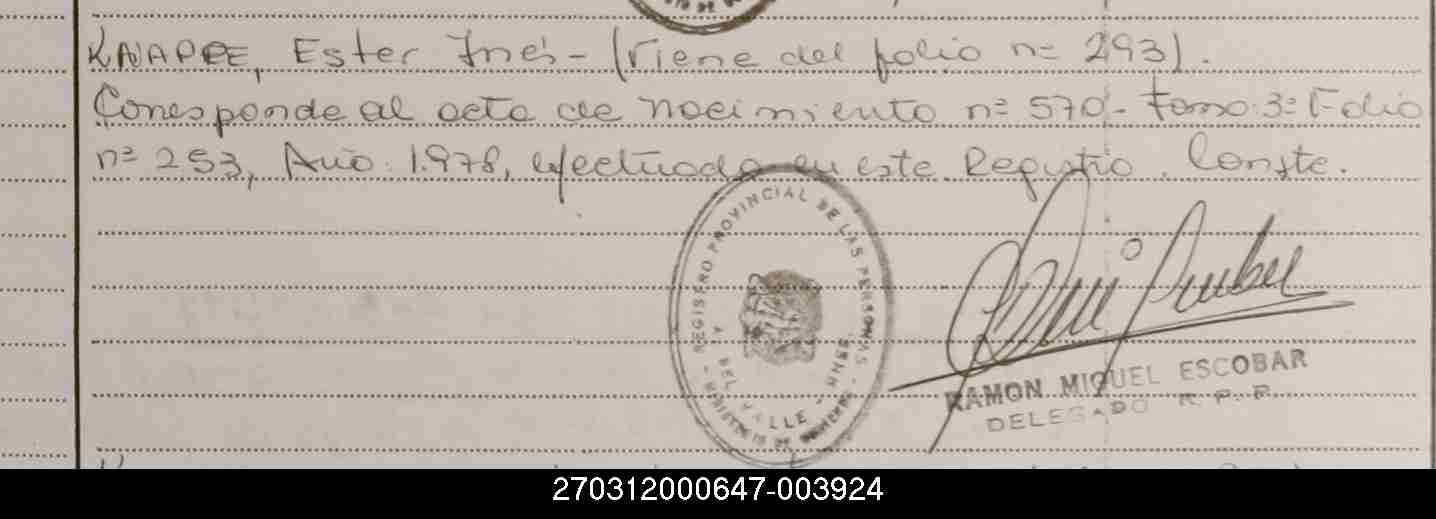 KNAPPE, Ester Inés - (Viene del folio nº 293).
Conesponde al acta de nacimiento nº 570 - Tomo: 3º Folio
nº 253, Año: 1.978, efectuada en este Registro. Conste.
REGISTRO PROVINCIAL DE LAS PERSONAS
RAMON MIGUEL ESCOBAR
DELEGADO R. P. P.
270312000647-003924